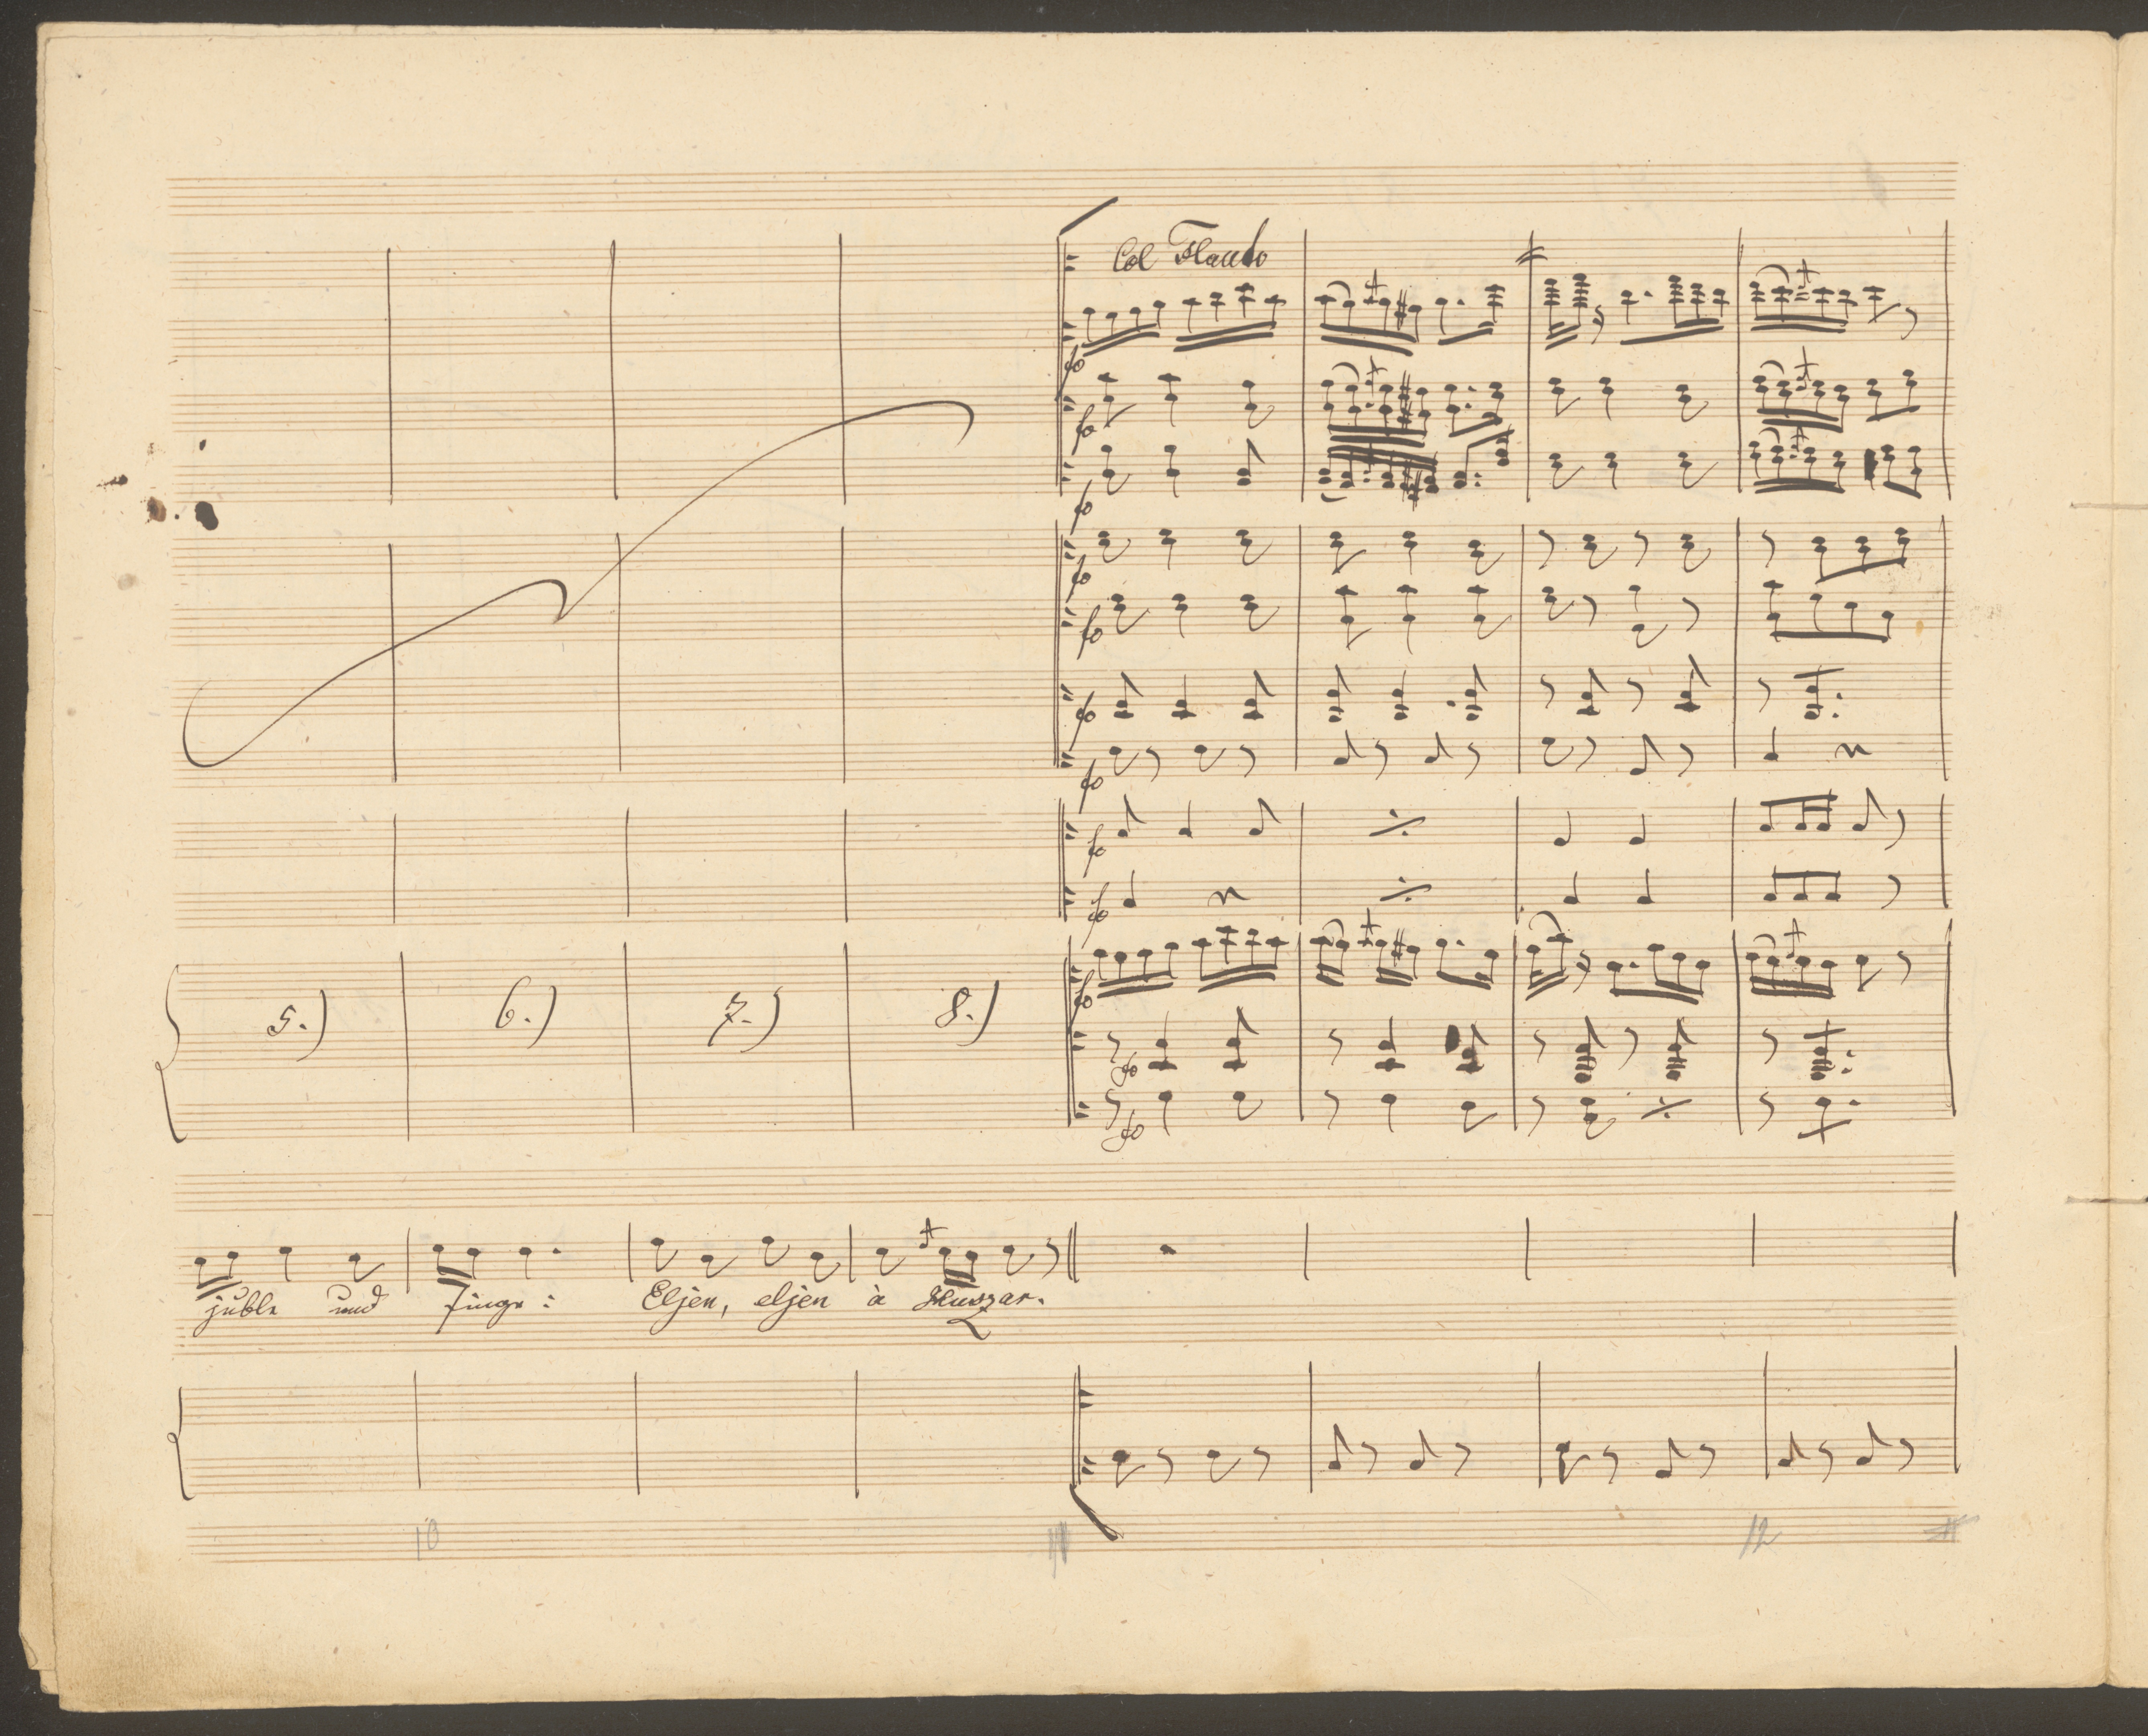 Col Flauto
fo
fo
fo
fo
fo
fo
fo
fo
fo
fo
5.) 6.) 7.) 8.)
fo
fo
juble und singe: Eljen, eljen à Huszar.
10 12